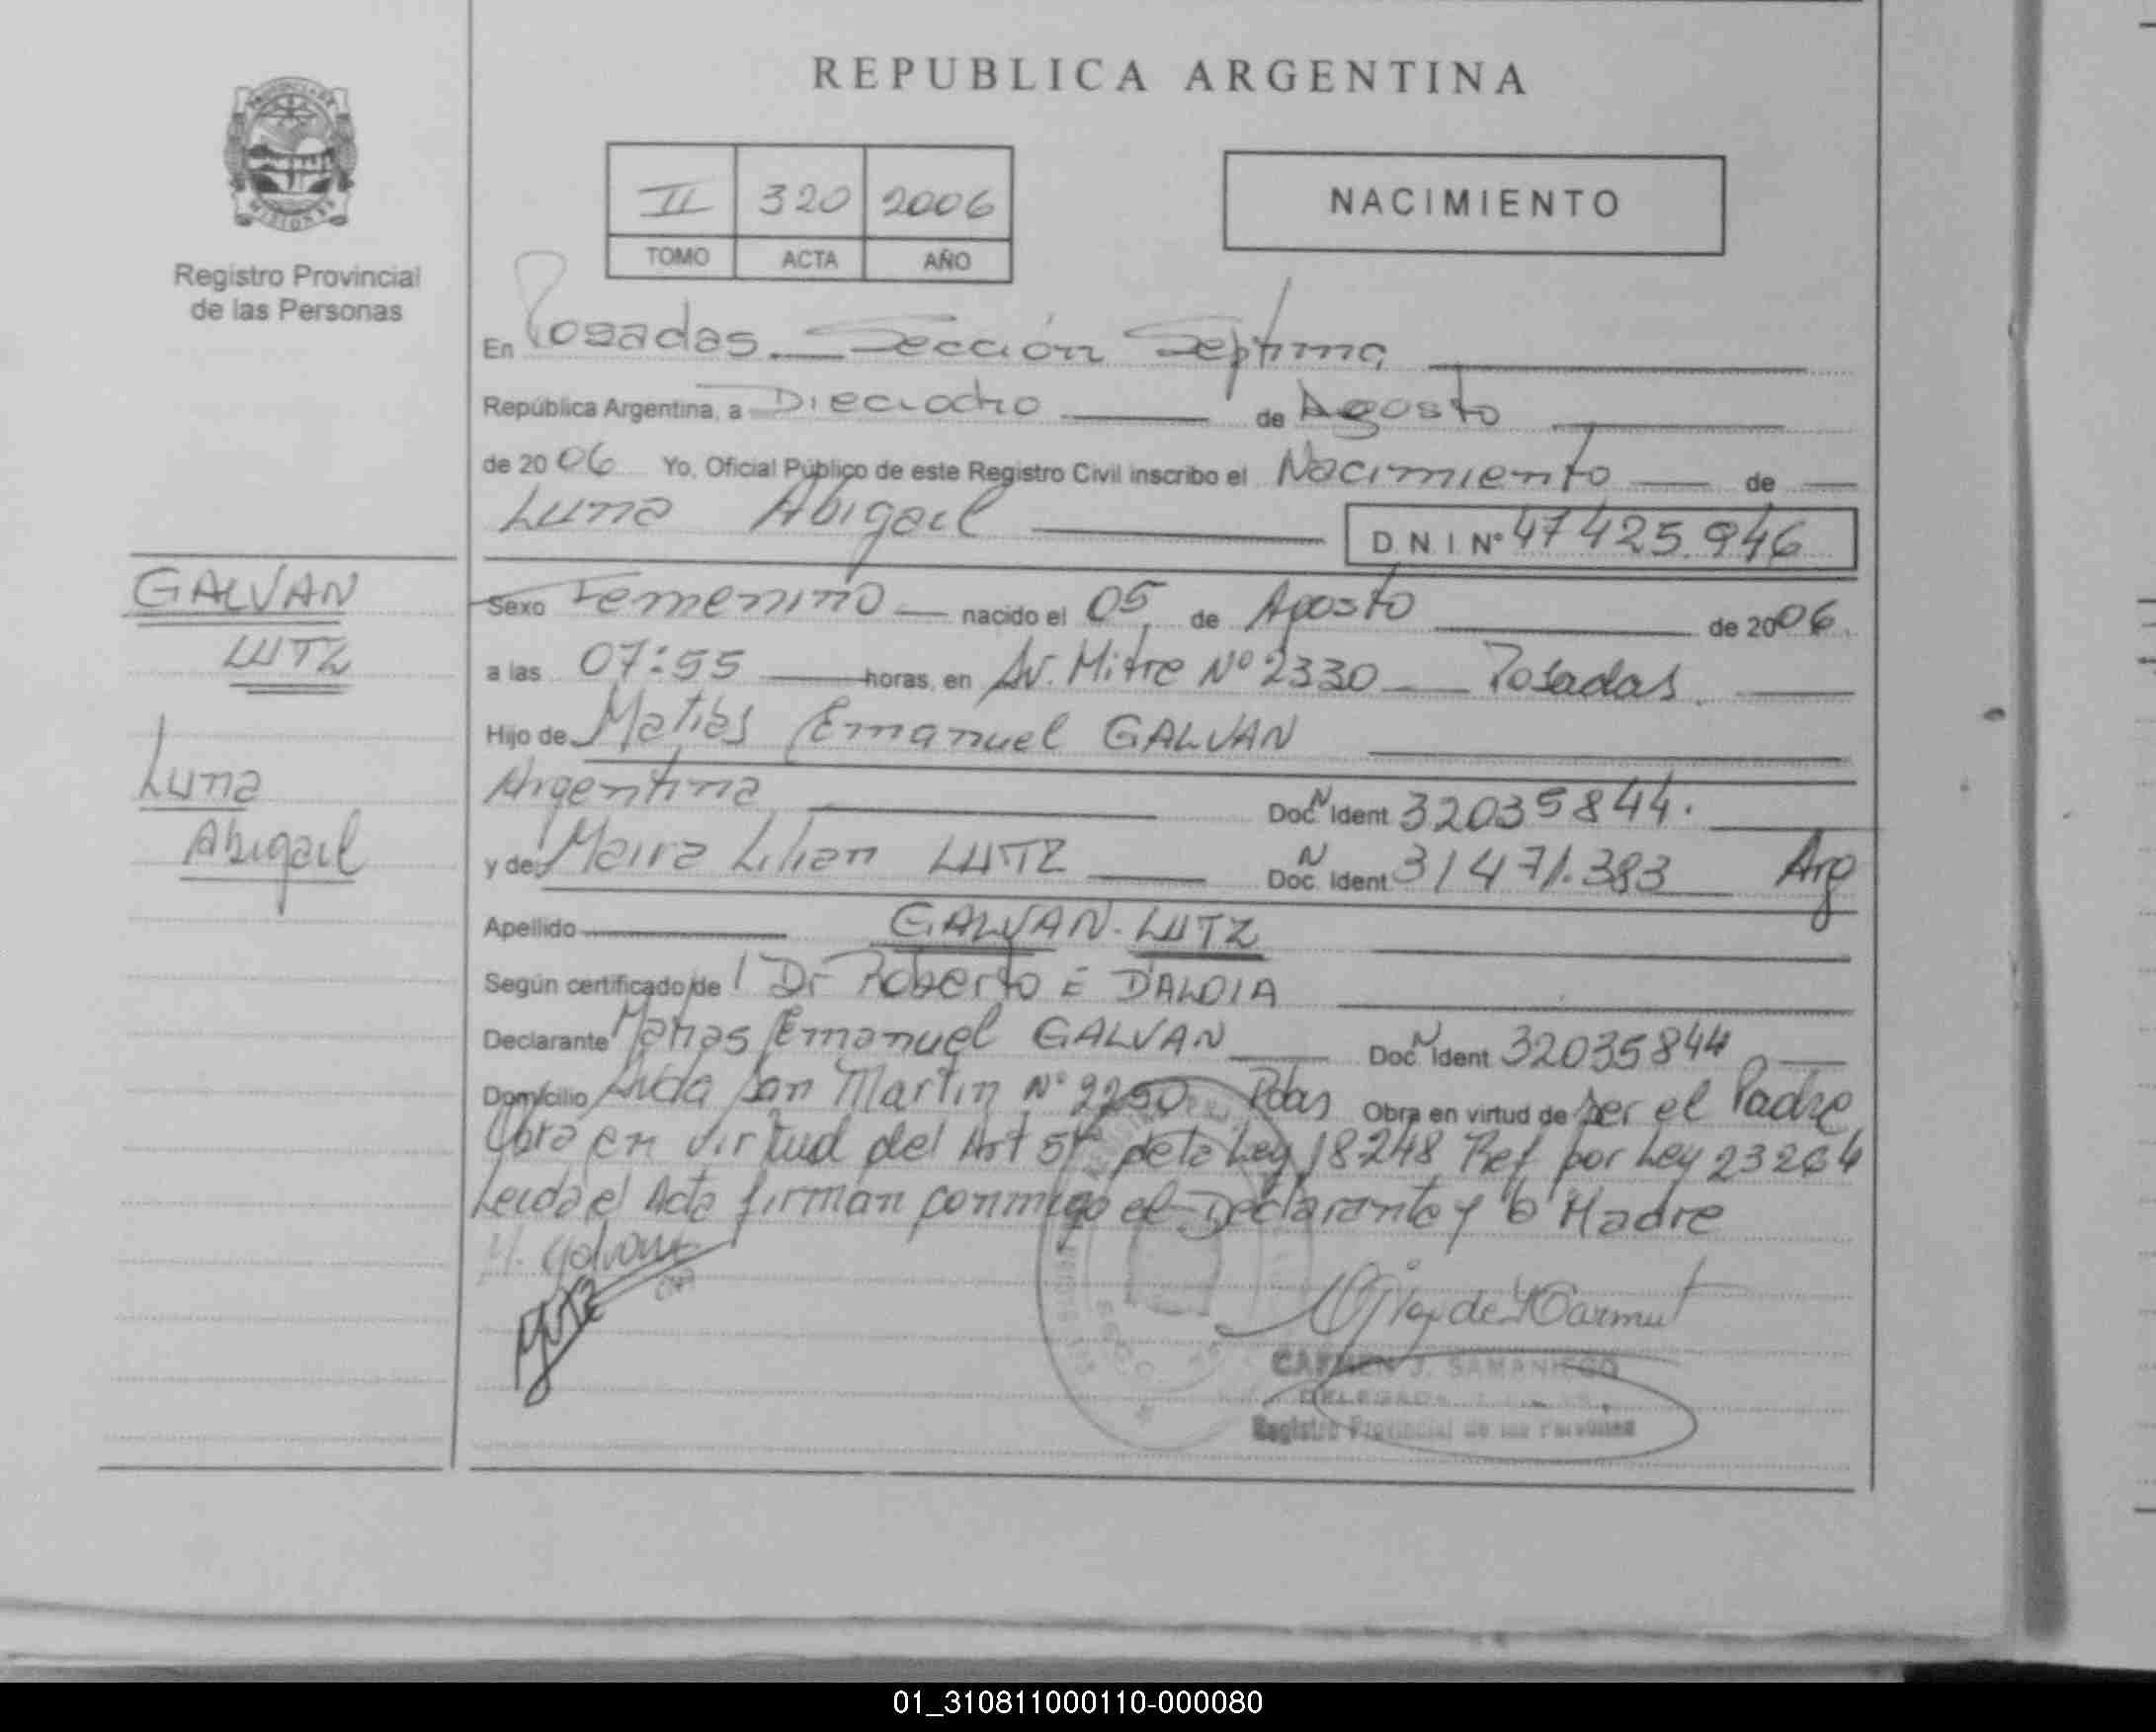 REPUBLICA ARGENTINA
PROVINCIA DE MISIONES
Registro Provincial
de las Personas
II 320 2006
TOMO ACTA AÑO
NACIMIENTO
En Posadas Sección Septima
República Argentina, a Dieciocho de Agosto
de 2006 Yo, Oficial Público de este Registro Civil inscribo el Nacimiento de
Luna Abigail D N I Nº 47425.946
GALVAN
LUTZ
Luna
Abigail
Sexo Femenino nacido el 05 de Agosto de 2006.
a las 07:55 horas, en Av. Mitre Nº 2330 Posadas.
Hijo de Matias Emanuel GALVAN
Argentina Doc. N Ident 32035844.
y de Maira Lilian LUTZ Doc. N Ident 31471.383 Arg
Apellido GALVAN-LUTZ
Según certificado de l Dr Roberto E DALOIA
Declarante Matias Emanuel GALVAN Doc. N Ident 32035844
Domicilio Avda San Martin Nº 2250 Pdas Obra en virtud de Ser el Padre
Obra en virtud del Art 5º de la Ley 18248 Ref por Ley 23264
Leida el Acta firman conmigo el Declarante y la Madre
M. Galvan
CARMEN J. SAMANIEGO
DELEGADA
Registro Provincial de las Personas
01_310811000110-000080